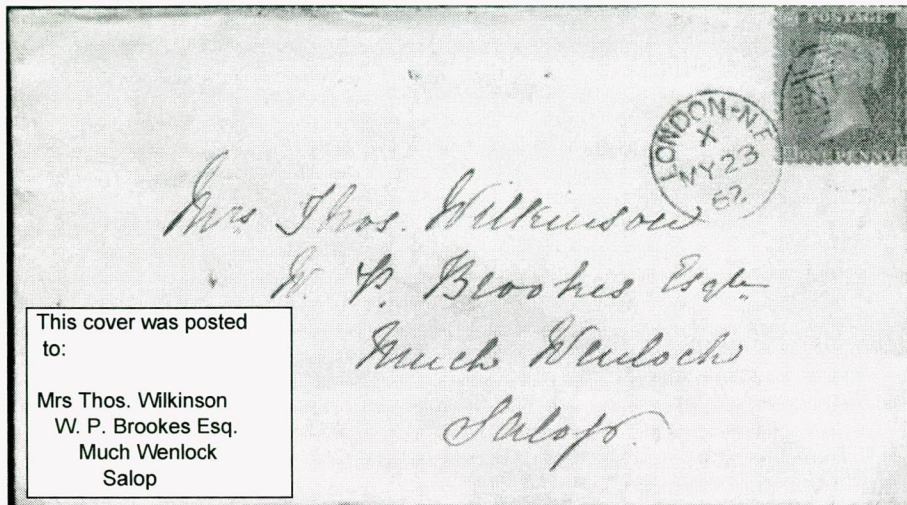 POSTAGE
ONE PENNY
LONDON-N.E
X
MY 23
67
Mrs Thos. Wilkinson
W. P. Brookes Esqre
Much Wenlock
Salop.
This cover was posted
to:
Mrs Thos. Wilkinson
W. P. Brookes Esq.
Much Wenlock
Salop